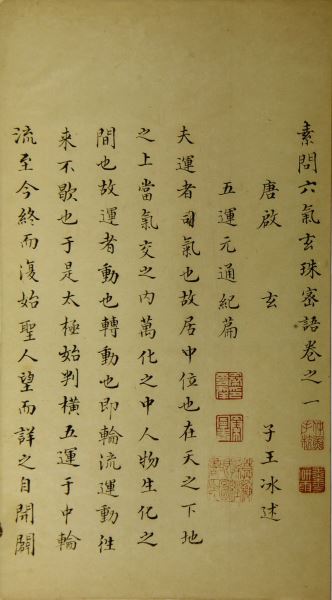 素問六氣玄珠密語卷之一
唐啟玄子王冰述
五運元通紀篇
夫運者司氣也故居中位也在天之下地
之上當氣交之内萬化之中人物生化之
間也故運者動也轉動也即輪流運動徃
來不歇也于是太極始判橫五運于中輪
流至今終而復始聖人望而詳之自開闢